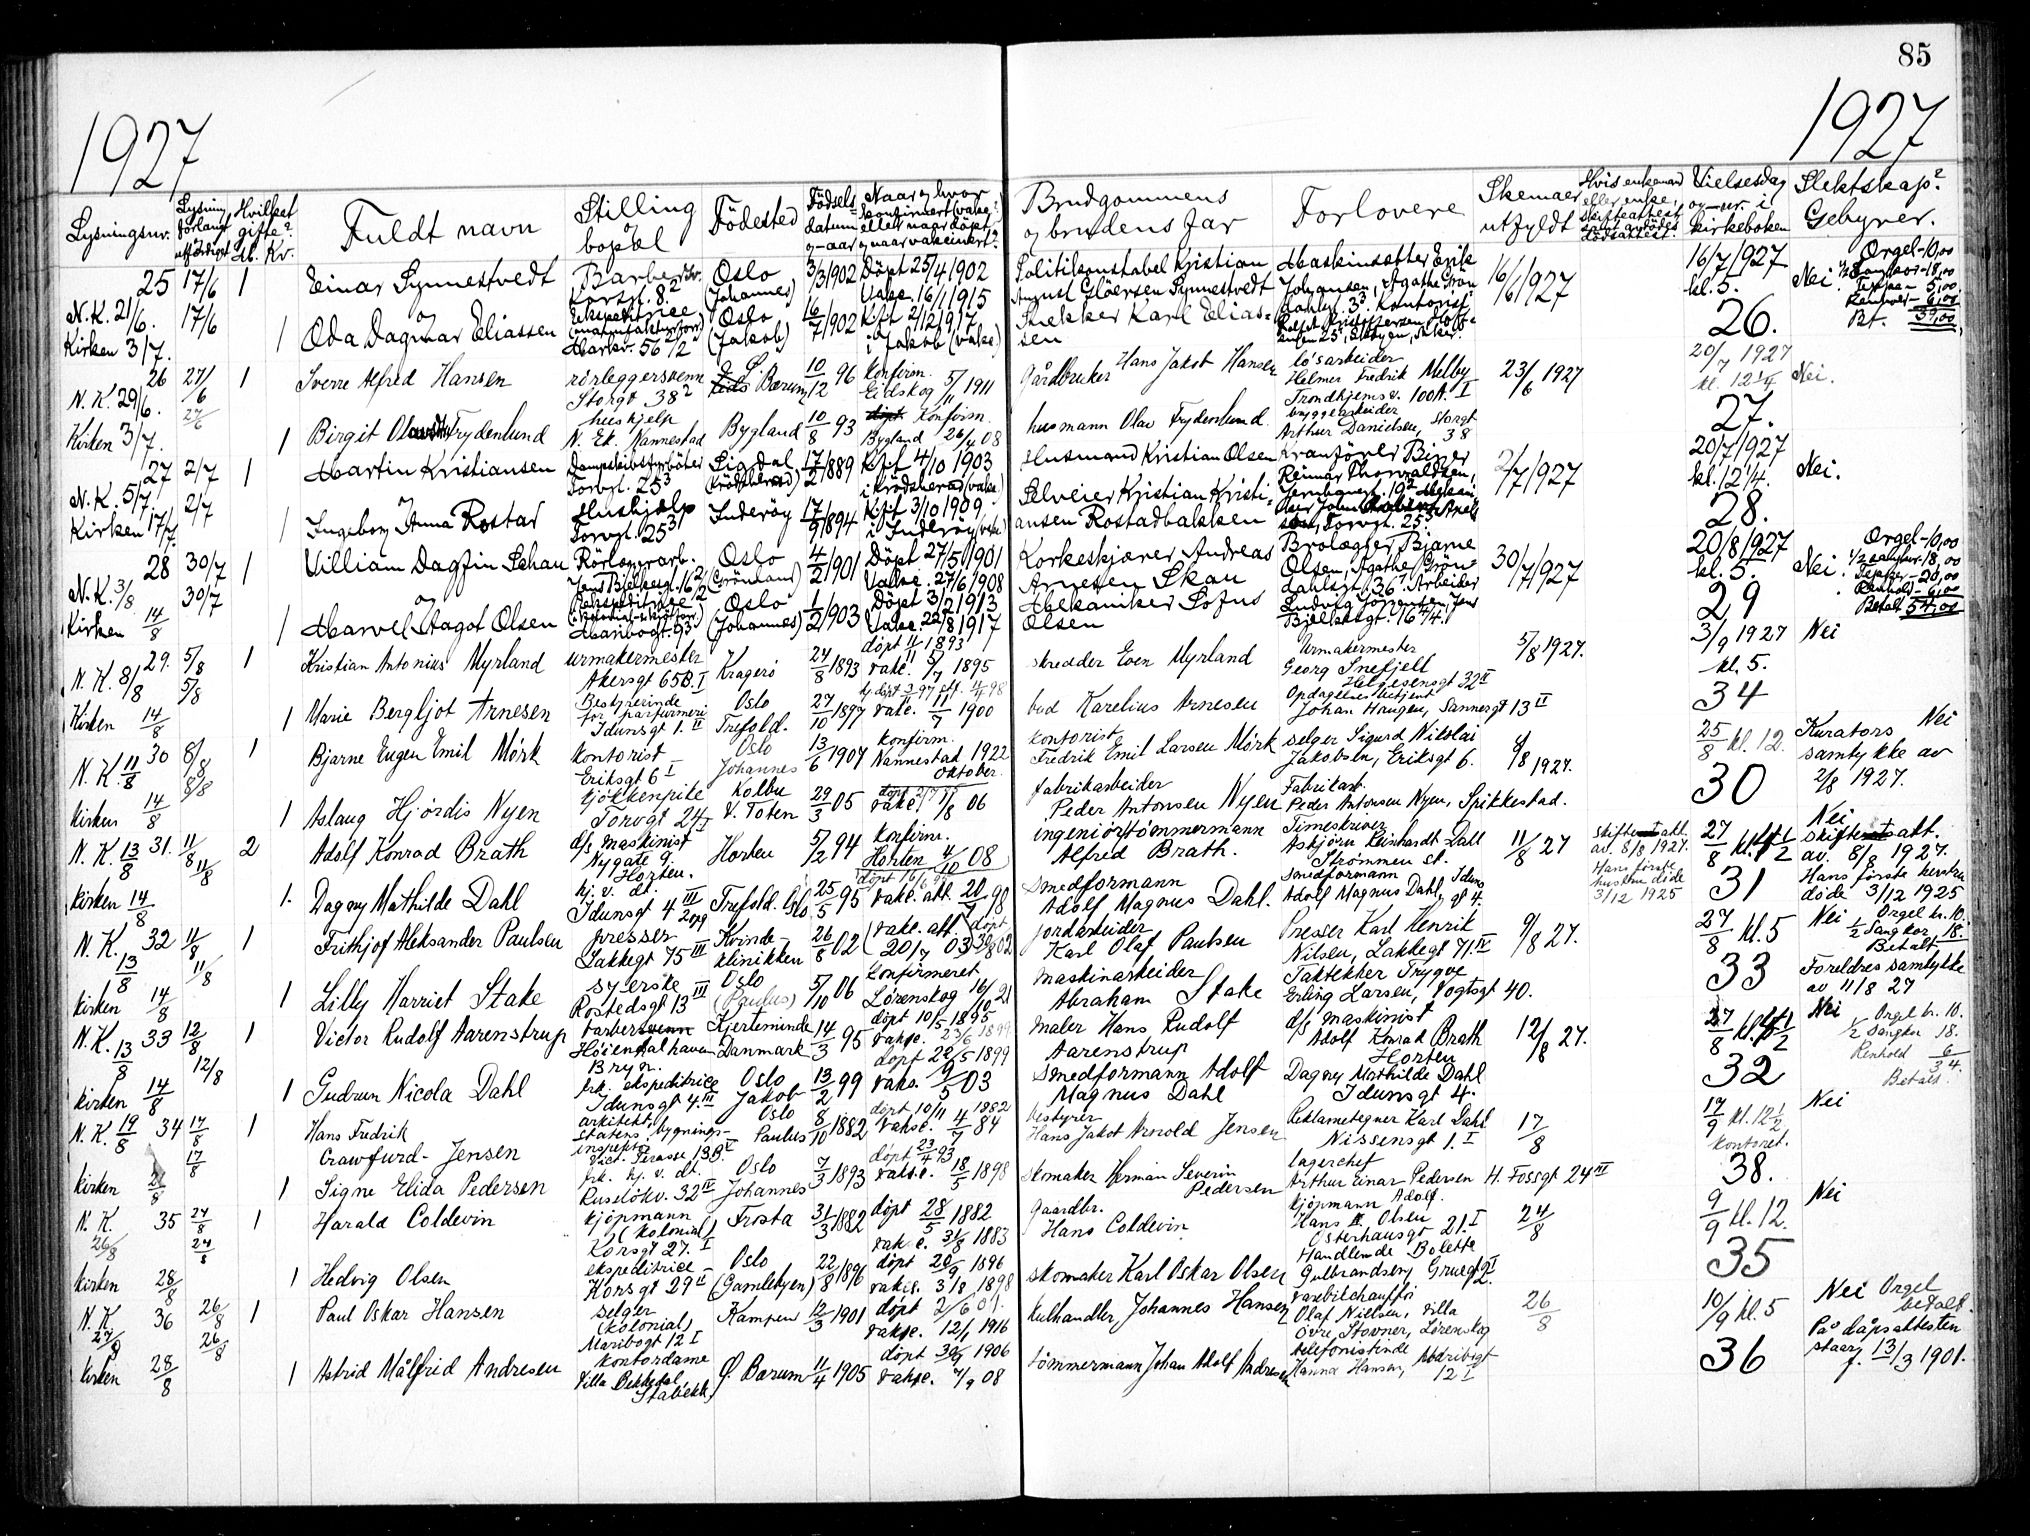 85
1927
1927
Lysningsnr.
Lysning forlangt utfærdiget
Hvilket gifte? M. Kv.
Fuldt navn
Stilling og bopæl
Fødested
Fødselsdatum og -aar
Naar og hvor konfirmert (vaks.)
eller naar døpt
og naar vakcinert?
Brudgommens og brudens far
Forlovere
Skemaer utfyldt
Hvis enkemand eller enke, skifteattest
Vielsesdag og -nr. i kirkeboken
Slektskap? Gebyrer.
25 17/6 1 Einar Synnestvedt
Oslo (Johannes) 3/3 1902 Døpt 25/4 1902
Vakc. 16/1 1915
Politikonstabel Kristian
August Gløersen Synnestvedt
Maskinsætter Erik
Johansen, Agathe Grøn
16/6 1927
16/7 1927 kl. 5.
26.
Nei.
Orgel - 10,00
N.K. 21/6. 17/6
og
Kirken 3/7. 1 Oda Dagmar Eliassen
Oslo (Jakob) 16/7 1902 Kft 2/12 1917
i Jakob (vakc)
Stekker Karl Eliassen
26 27/6 1 Sverre Alfred Hansen
rørleggersvenn
Storgt 38²
Bærum 10/12 96 Konfirm.
Eidskog 5/11 1911
Gårdbruker Hans Jakob Hansen
løsarbeider
Helmer Fredrik Melby
Trondhjemsv. 100A. I
23/6 1927
20/7 1927
kl. 12 1/4
27.
Nei.
N.K. 29/6. 27/6
Kirken 3/7. 1 Birgit Frydenlund
hushjelp
N. Ek. Nannestad
Bygland 10/8 93 Konfirm.
Bygland 08
husmann Olav Frydenlund
byggearbeider
Arthur Danielsen, Storgt 38
27 2/7 1 Martin Kristiansen
Torvgt. 25³
Sigdal 17/2 1889 Kft 4/10 1903
Husmand Kristian Olsen
Kranfører Birger
Reimar Thorvaldsen,
2/7 1927
20/7 1927
kl. 12 1/4.
28.
Nei.
N.K. 5/7. 2/7
og
Kirken 17/7. 1 Ingeborg Anna Rostad
Hushjælp
Torvgt. 25³
Inderøy 17/9 1894 Kft 3/10 1909
i Inderøy
Selveier Kristian Kristiansen Rostadbakken
Torvgt. 25³
28 30/7 1 William Dagfin Schau
Rørlægerarb.
Oslo (Grønland) 4/2 1901 Døpt 27/5 1901
Vakc. 27/6 1908
Korkeskjærer Andreas
Arnesen Skau
Brolægger Bjarne
Olsen, Agathe Grøndahlsgt. 36. Arbeider
30/7 1927
20/8 1927
kl. 5.
29
Nei.
Orgel - 10,00
N.K. 3/8 30/7
og
Kirken 14/8 1 Marvel Aagot Olsen
Oslo (Johannes) 1/2 1903 Døpt 3/2 1913
Vakc. 22/8 1917
Mekaniker Sofus
Olsen
29. 5/8 1 Kristian Antonius Myrland
urmakermester
Akersgt 65B. I
Kragerø 24/8 1893
døpt 11/11 1893
vakc. 5/7 1895
skredder Even Myrland
Urmakermester
Georg Snefjell
Helgesensgt 32 II
5/8 1927.
3/9 1927
kl. 5.
34
Nei
N.K. 8/8 5/8
Kirken 14/8 1 Marie Bergljot Arnesen
Bestyrerinde
for parfumeri
Idunsgt 1. II
Oslo
Trefold.
27/10 1897
vakc. 11/7 1900
bud Karelius Arnesen
Opdagelsesbetjent
Johan Haugen, Sannergt 13 II
30 8/8 1 Bjarne Eugen Emil Mørk
kontorist
Eriksgt 6 I
Oslo
Johannes
13/6 1904
konfirm.
Nannestad 1922
Oktober
kontorist
Fredrik Emil Larsen Mørk
selger Sigurd Nikolai
Jakobsen, Eriksgt 6.
4/8 1927.
25/8 kl. 12.
30
Nei
Kurators
samtykke av
2/8 1927.
N.K 11/8 8/8
Kirken 14/8 1 Aslaug Hjørdis Nyen
kjøkkenpike
Torvgt 24 I
Kolbu
V. Toten
29/3 05
vakc. 7/8 06
fabrikarbeider
Peder Antonsen Nyen
Fabrikarb.
Peder Antonsen Nyen, Spikkestad.
N.K. 13/8 31. 11/8 2 Adolf Konrad Brath
d/s maskinist
Nygate 9.
Horten.
Horten 5/2 94
konfirm.
Horten 4/10 08
ingeniørtømmermann
Alfred Brath.
Timeskriver
Asbjørn Reinhardt Dahl
Strømmen st.
11/8 27
skifteatt.
av. 8/8 1927.
Hans første
hustru døde
3/12 1925
27/8
31
Nei
skifteatt.
av. 8/8 1927.
Hans første hustru
døde 3/12 1925
11/8
Kirken 14/8 1. Dagny Mathilde Dahl
hj. v. dt.
Idunsgt 4 III opg
Trefold. Oslo. 25/5 95
vakc. att. 20/7 98
Smedformann
Adolf Magnus Dahl.
Smedformann
Adolf Magnus Dahl, Idunsgt 4.
N.K. 13/8 32 11/8 1 Frithjof Aleksander Paulsen
presser
Lakkegt 75 III
Kvindeklinikken
26/8 02
vakc. att.
20/7 03
jordarbeider
Karl Olaf Paulsen
Presser Karl Henrik
Nilsen, Lakkegt 71. IV
9/8 27.
27/8 kl. 5
33
Nei
Orgel kr. 10.
1/2 Sangkor 18.
Betalt
11/8
Kirken 14/8 1 Lilly Harriet Stake
syerske
Rostedsgt 13 III
Oslo
(Paulus)
5/10 06
Konfirmeret
Lørenskog 16/10 21
maskinarbeider
Abraham Stake
Taktekker Trygve
Erling Larsen, Vogtsgt 40.
Foreldres samtykke
av 11/8 27
N.K. 13/8 33 12/8 1 Victor Rudolf Aarenstrup
barbersvenn
Høienhalhaven
Bryn.
Kjerteminde
Danmark
14/3 95
døpt 10/5 1895
vakc. 23/6 1899
maler Hans Rudolf
Aarenstrup
d/s maskinist
Adolf Konrad Brath
Horten
12/8 27.
27/8
32
Nei
Orgel kr. 10.
1/2 Sangkor 18.
Renhold 6
34.
Betalt.
12/8
Kirken 14/8 1 Gudrun Nicola Dahl
frk. ekspeditrice
Idunsgt 4. III
Oslo
Jakob
13/2 99
døpt 22/5 1899
vaks. 9/5 03
Smedformann Adolf
Magnus Dahl
Dagny Mathilde Dahl
Idunsgt 4.
N.K. 19/8 34 17/8 1 Hans Fredrik
Crawfurd-Jensen
arkitekt,
statens bygningsinspektør
Vict. Terasse 13B. V
Oslo
Paulus
8/10 1882
døpt 10/11 1882
Vaksc. 4/7 84
bestyrer
Hans Jakob Arnold Jensen
Reklametegner Karl Dahl
Nissensgt 1. I
17/8
17/9 kl. 12 1/2
kontoret.
38.
Nei
17/8
Kirken 21/8 1 Signe Elida Pedersen
frk. hj. v. dt.
Ruseløkv. 32 IV
Oslo
Johannes
7/3 1893
døpt 23/4 93
vaksc. 18/5 1898
skomaker Herman Severin
Pedersen
lagerchef
Arthur Einar Pedersen H. Fossgt 24 III
N.K. 26/8 35 24/8 1 Harald Coldevin
kjøpmann
(kolonial)
Korsgt 27. I
Frosta 31/3 1882
døpt 28/5 1882
vakc. 31/8 1883
gaardbr.
Hans Coldevin
kjøpmann Adolf
Hans Olsen
Osterhausgt 21. I
24/8
9/9 kl. 12.
35
Nei
24/8
Kirken 28/8 1 Hedvig Olsen
ekspeditrice
Korsgt 29 II
Oslo
(Gamlebyen)
22/8 1896
døpt 20/9 1896
vakc. 3/8 1898
skomaker Karl Oskar Olsen
Handlende Bolette
Gulbrandsen,
N.K. 27/8 36 26/8 1 Paul Oskar Hansen
selger
(kolonial)
Maribogt 12 I
Kampen 12/3 1901
døpt 2/6 01.
vaksc. 12/1 1916
kulhandler, Johannes Hansen
varebilchauffør
Olaf Nielsen, villa
Øvre, Stovner, Lørenskog
26/8
10/9 kl. 5
36
Nei Orgel
betalt.
På dåpsattesten
staar
f. 13/3 1901.
26/8
Kirken 28/8 1 Astrid Målfrid Andresen
kontordame
Villa Bekkedal,
Stabekk
Ø. Bærum 11/4 1905
døpt 30/9 1906
vaksc. 7/9 08
tømmermann Johan Adolf Andresen
telefonistinde
Hanna Hansen, Maribogt
12 I